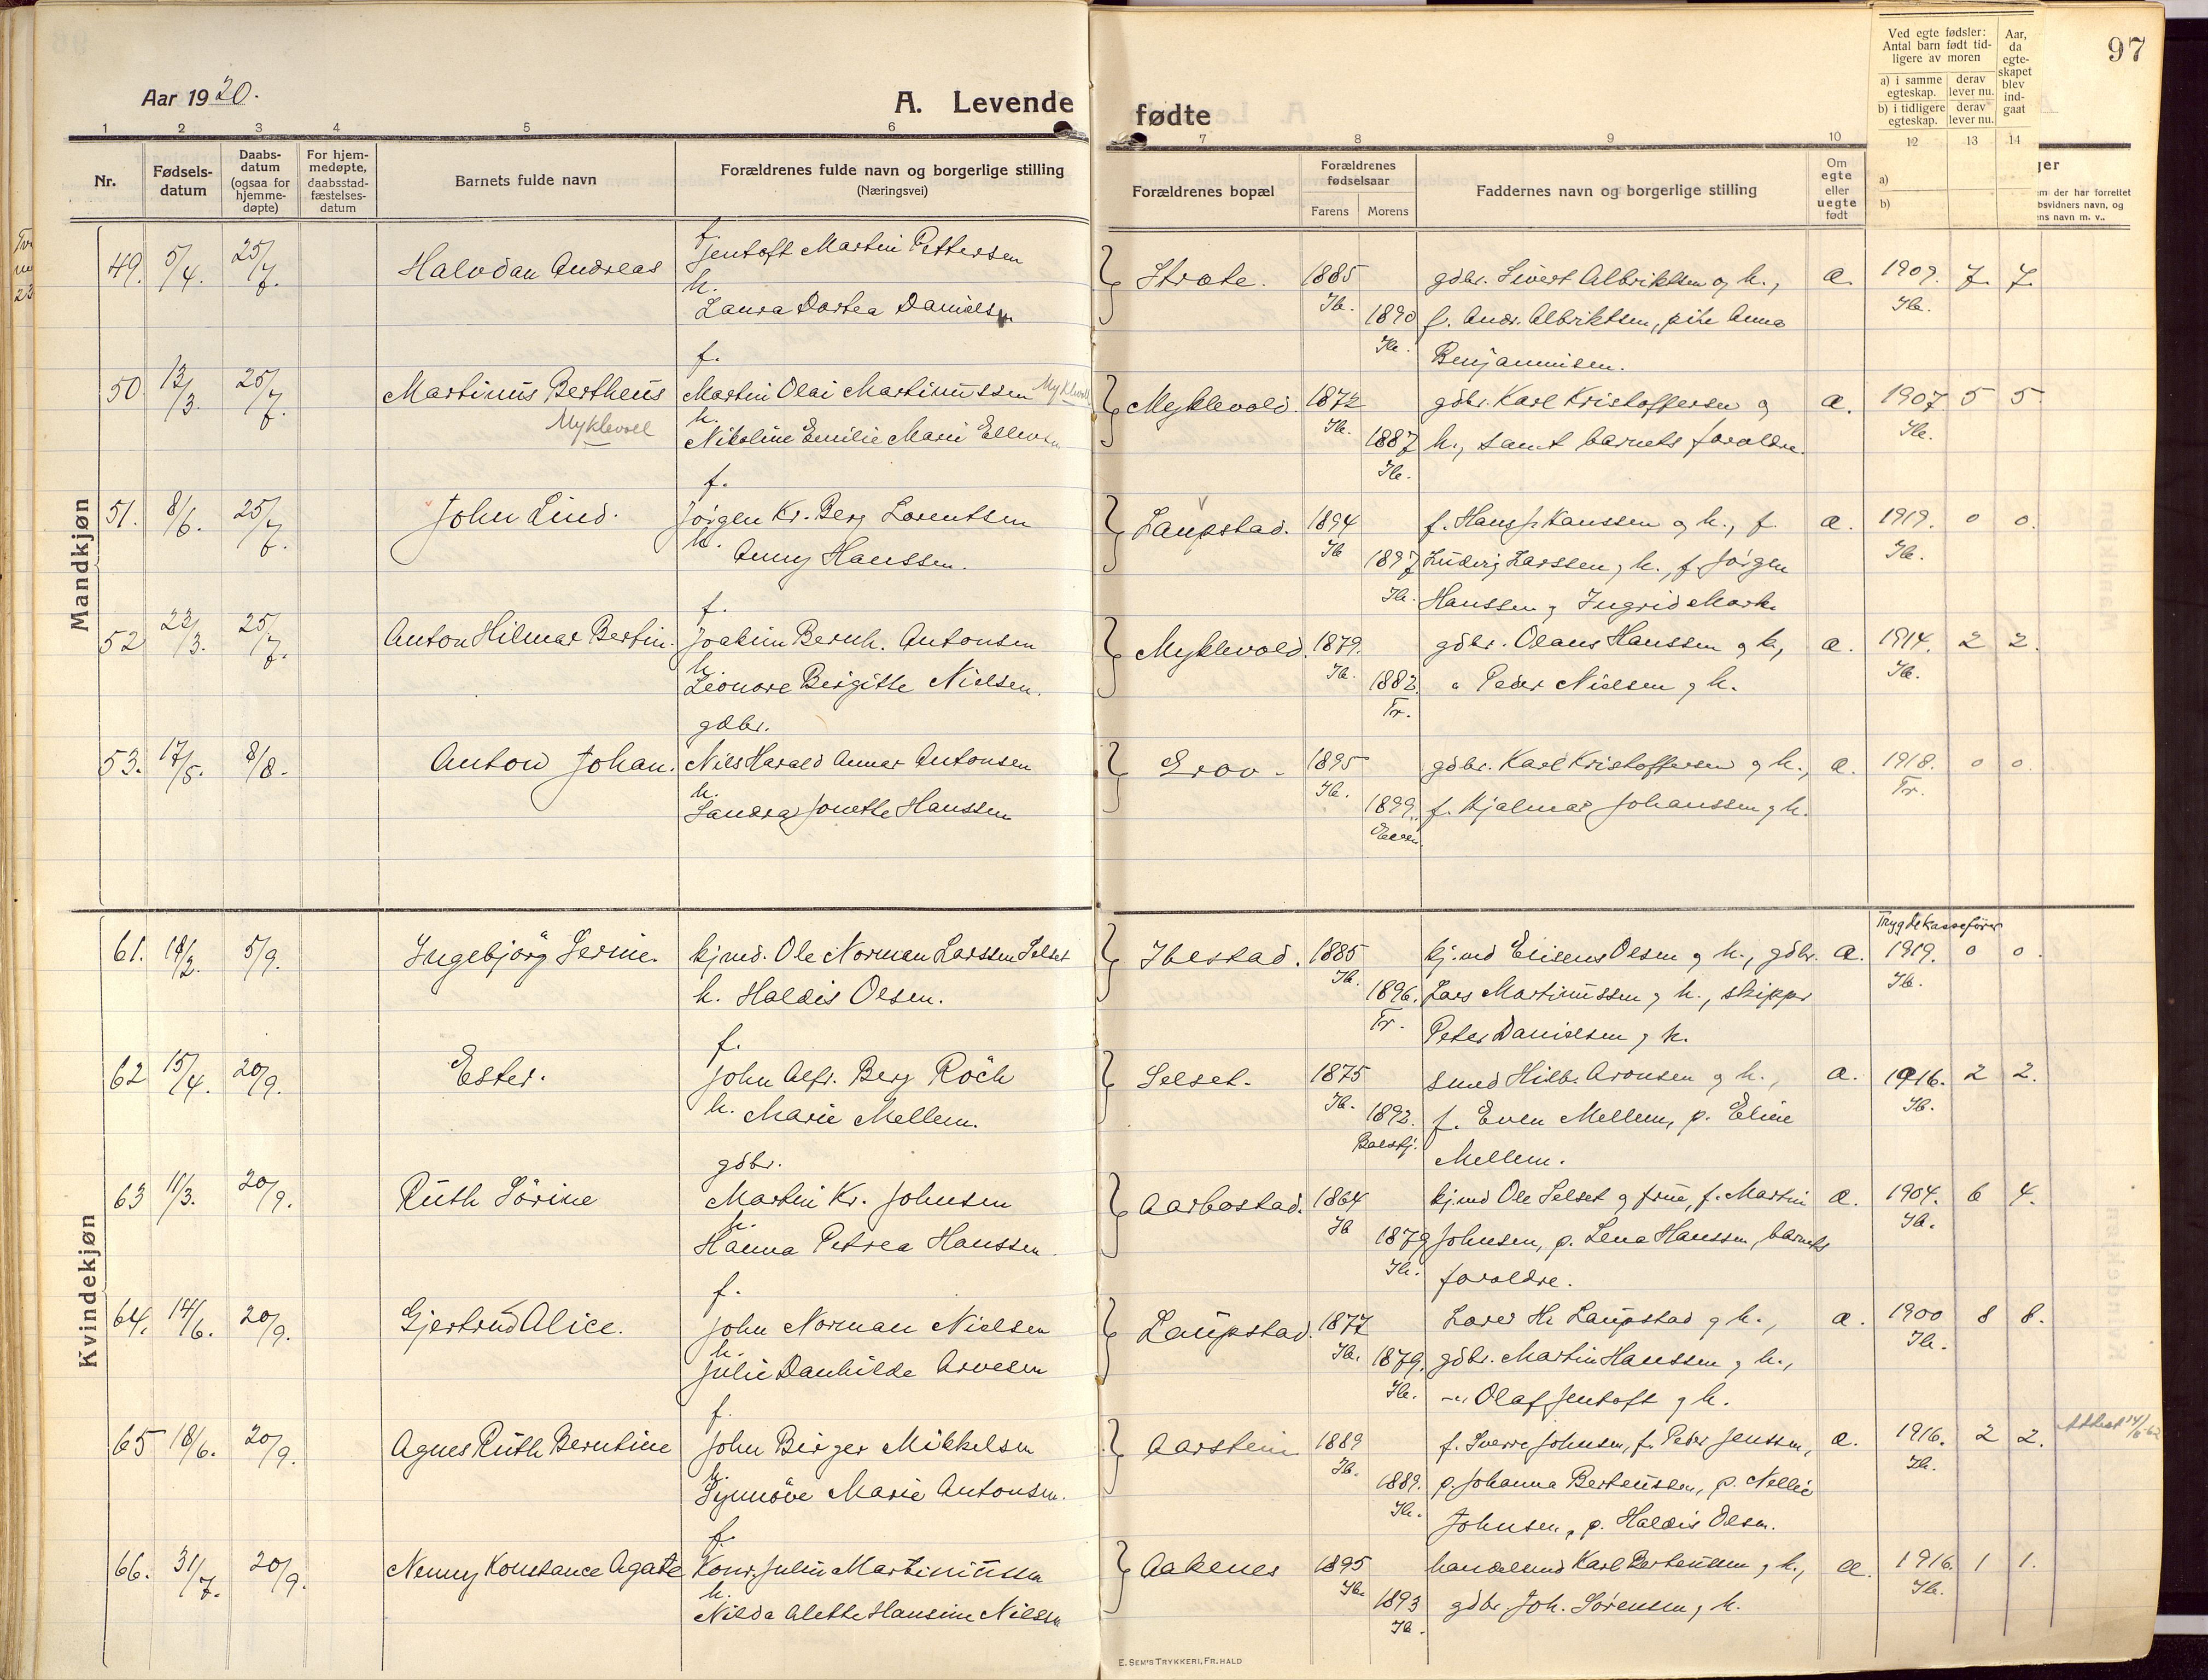 97
Aar 1920.
A. Levende fødte
1 2 3 4 5 6 7 8 9 10 12 13 14
Nr.
Fødsels-datum
Daabs-datum (ogsaa for hjemme-døpte)
For hjem-medøpte, daabsstad-fæstelses-datum
Barnets fulde navn
Forældrenes fulde navn og borgerlige stilling
(Næringsvei)
Forældrenes bopæl
Forældrenes fødselsaar
Farens Morens
Faddernes navn og borgerlige stilling
Om egte eller uegte født
Ved egte fødsler: Antal barn født tid-ligere av moren
a) i samme egteskap. derav lever nu.
b) i tidligere egteskap. derav lever nu.
Aar, da egte-skapet blev ind-gaat
a)
b)
Mandkjøn
49. 5/4. 25/7. Halvdan Andreas
f. Jentoft Martin Pettersen
h. Laura Dortea Danielsen
1885 Ib. 1890 Ib.
gdbr. Sivert Albriktsen og h.,
f. Andr. Albriktsen, pike Anna
Benjaminsen.
a. 1909. Ib. 7. 7.
50 13/3. 25/7. Martinus Bertheus
Myklevoll
f. Martin Olai Martinussen Myklevoll
h. Nikoline Emilie Marie Ellevsen
Myklevold. 1872 Ib. 1887 Ib.
gdbr. Karl Kristoffersen og
h., samt barnets forældre.
a. 1907 Ib. 5 5
51. 8/6. 25/7. John Lind.
f. Jörgen Kr. Berg Lorentsen
h. Anny Hanssen.
Laupstad. 1894 Ib 1897 Ib.
f. Hans J. Hanssen og h., f.
Ludvig Larssen og h., f. Jörgen
Hanssen og Ingrid Mark
a. 1919. Ib. 0 0.
52 22/3. 25/7. Anton Hilmar Bertin.
f. Joakim Bernh. Antonsen
h. Leonore Bergitte Nielsen.
Myklevold. 1879. Ib. 1882. Tr.
gdbr. Olaus Hanssen og h.,
" Peder Nielsen og h.
a. 1914. Ib. 2 2.
53. 17/5. 8/8. Anton Johan.
gdbr. Nils Harald Anner Antonsen
h. Sandra Jonette Hanssen
Grov. 1895 Ib. 1899.
gdbr. Karl Kristoffersen og h.,
f. Hjalmar Johanssen og h.
a. 1918. Tr. 0 0.
Kvindekjøn
61. 18/2. 5/9. Ingebjörg Jernie.
kjmd. Ole Norman Larssen Selset
h. Haldis Olsen.
Ibestad. 1885 Ib. 1896. Tr.
kj.md Eliseus Olsen og h., gdbr.
Lars Martinussen og h., skipper
Peter Danielsen og h.
Trygdekassefører
a. 1919. Ib. 0 0.
62 15/4. 20/9. Ester.
f. John Alfr. Berg Röch
h. Marie Mellem.
Selset. 1875 Ib. 1892. Balsfj.
smed Hilb. Aronsen og h.,
f. Even Mellem, p. Eline
Mellem.
a. 1916. Ib. 2 2.
63 11/3. 20/9. Ruth Sörine
gdbr. Martin Kr. Johnsen
h. Hanna Petrea Hanssen.
Aarbostad. 1864 Ib 1879 Ib.
kj.md Ole Selset og frue, f. Martin
Johnsen, p. Lena Hanssen, barnets
forældre.
a. 1904. Ib. 6 4.
64. 14/6. 20/9. Gjertrud Alice.
f. John Norman Nielsen
h. Julie Danhilde Arvesen
Laupstad. 1877 Ib. 1879. Ib.
Lars H. Laupstad og h.,
gdbr. Martin Hanssen og h.,
-"- Olaf Jentoft og h.
a. 1900 Ib. 8 8.
65 18/6. 20/9. Agnes Ruth Berntine
f. John Birger Mikkelsen
h. Synnöve Marie Antonsen.
Aarstein 1889 Ib. 1889. Ib.
f. Sverre Johnsen, f. Peder Jenssen,
p. Johanna Berteussen, p. Nellie
Johnsen, p. Haldis Olsen.
a. 1916. Ib. 2 2.
Attest 14/6-62
66. 31/7. 20/9. Nenny Konstance Agate
f. Konr. Julin Martinussen
h. Nilda Alette Hansine Nilsen
Aakenes 1895 Ib. 1893 Ib.
handelsmd Karl Berteussen og h.,
gdbr. Joh. Sørensen og h.
a. 1916. Ib. 1 1.
E. SEM'S TRYKKERI, FR.HALD